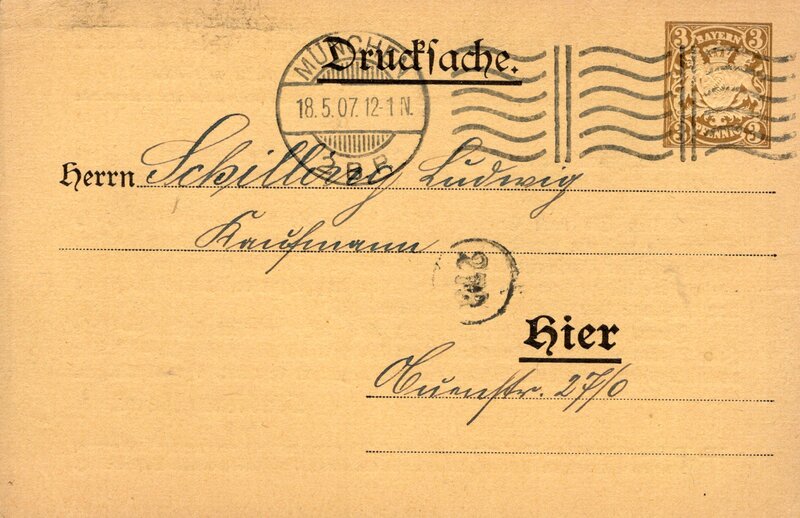 3 BAYERN 3
3 PFENNIG 3
Drucksache.
MÜNCHEN
18.5.07. 12-1 N.
2 B.P.
Herrn Schillberg Ludwig
Kaufmann
Hier
27/0